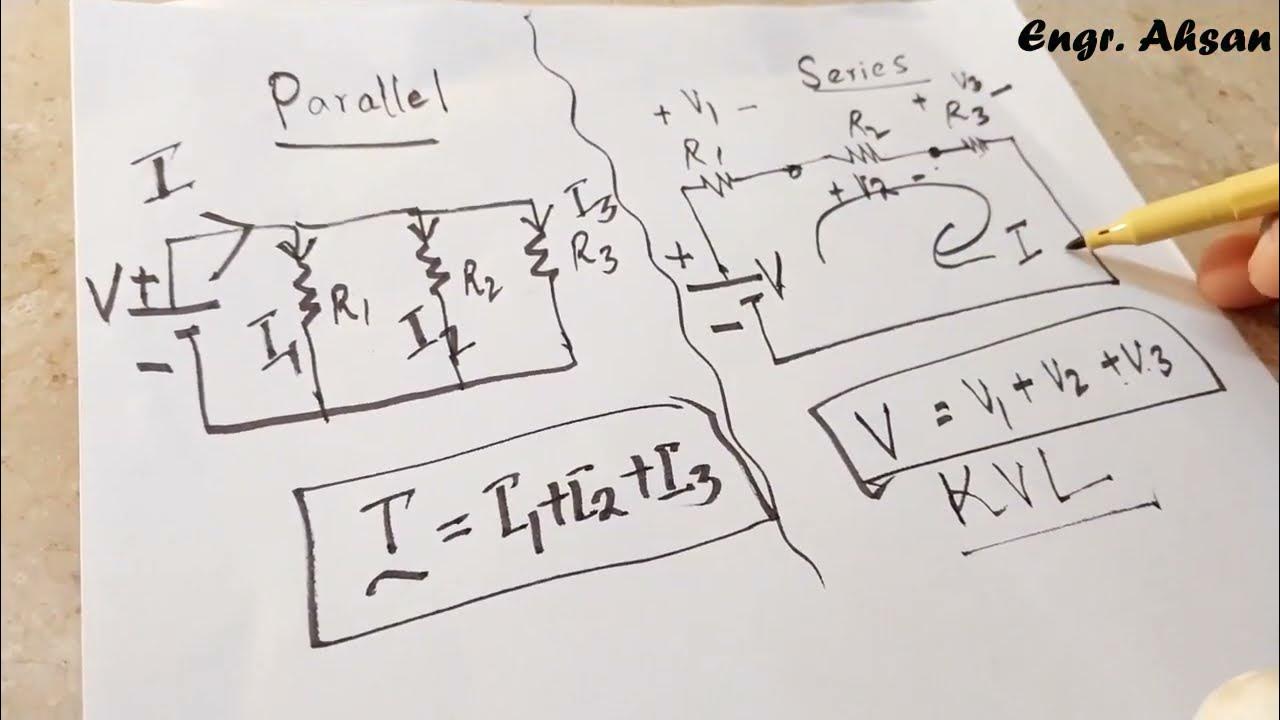 Engr. Ahsan
Parallel
I
V + -
I1 R1
I2 R2
I3 R3
I = I1+I2+I3
Series
+ V1 -
R1
R2
+ V2 -
+ V3 -
R3
+ V -
I
V = V1 + V2 + V3
KVL